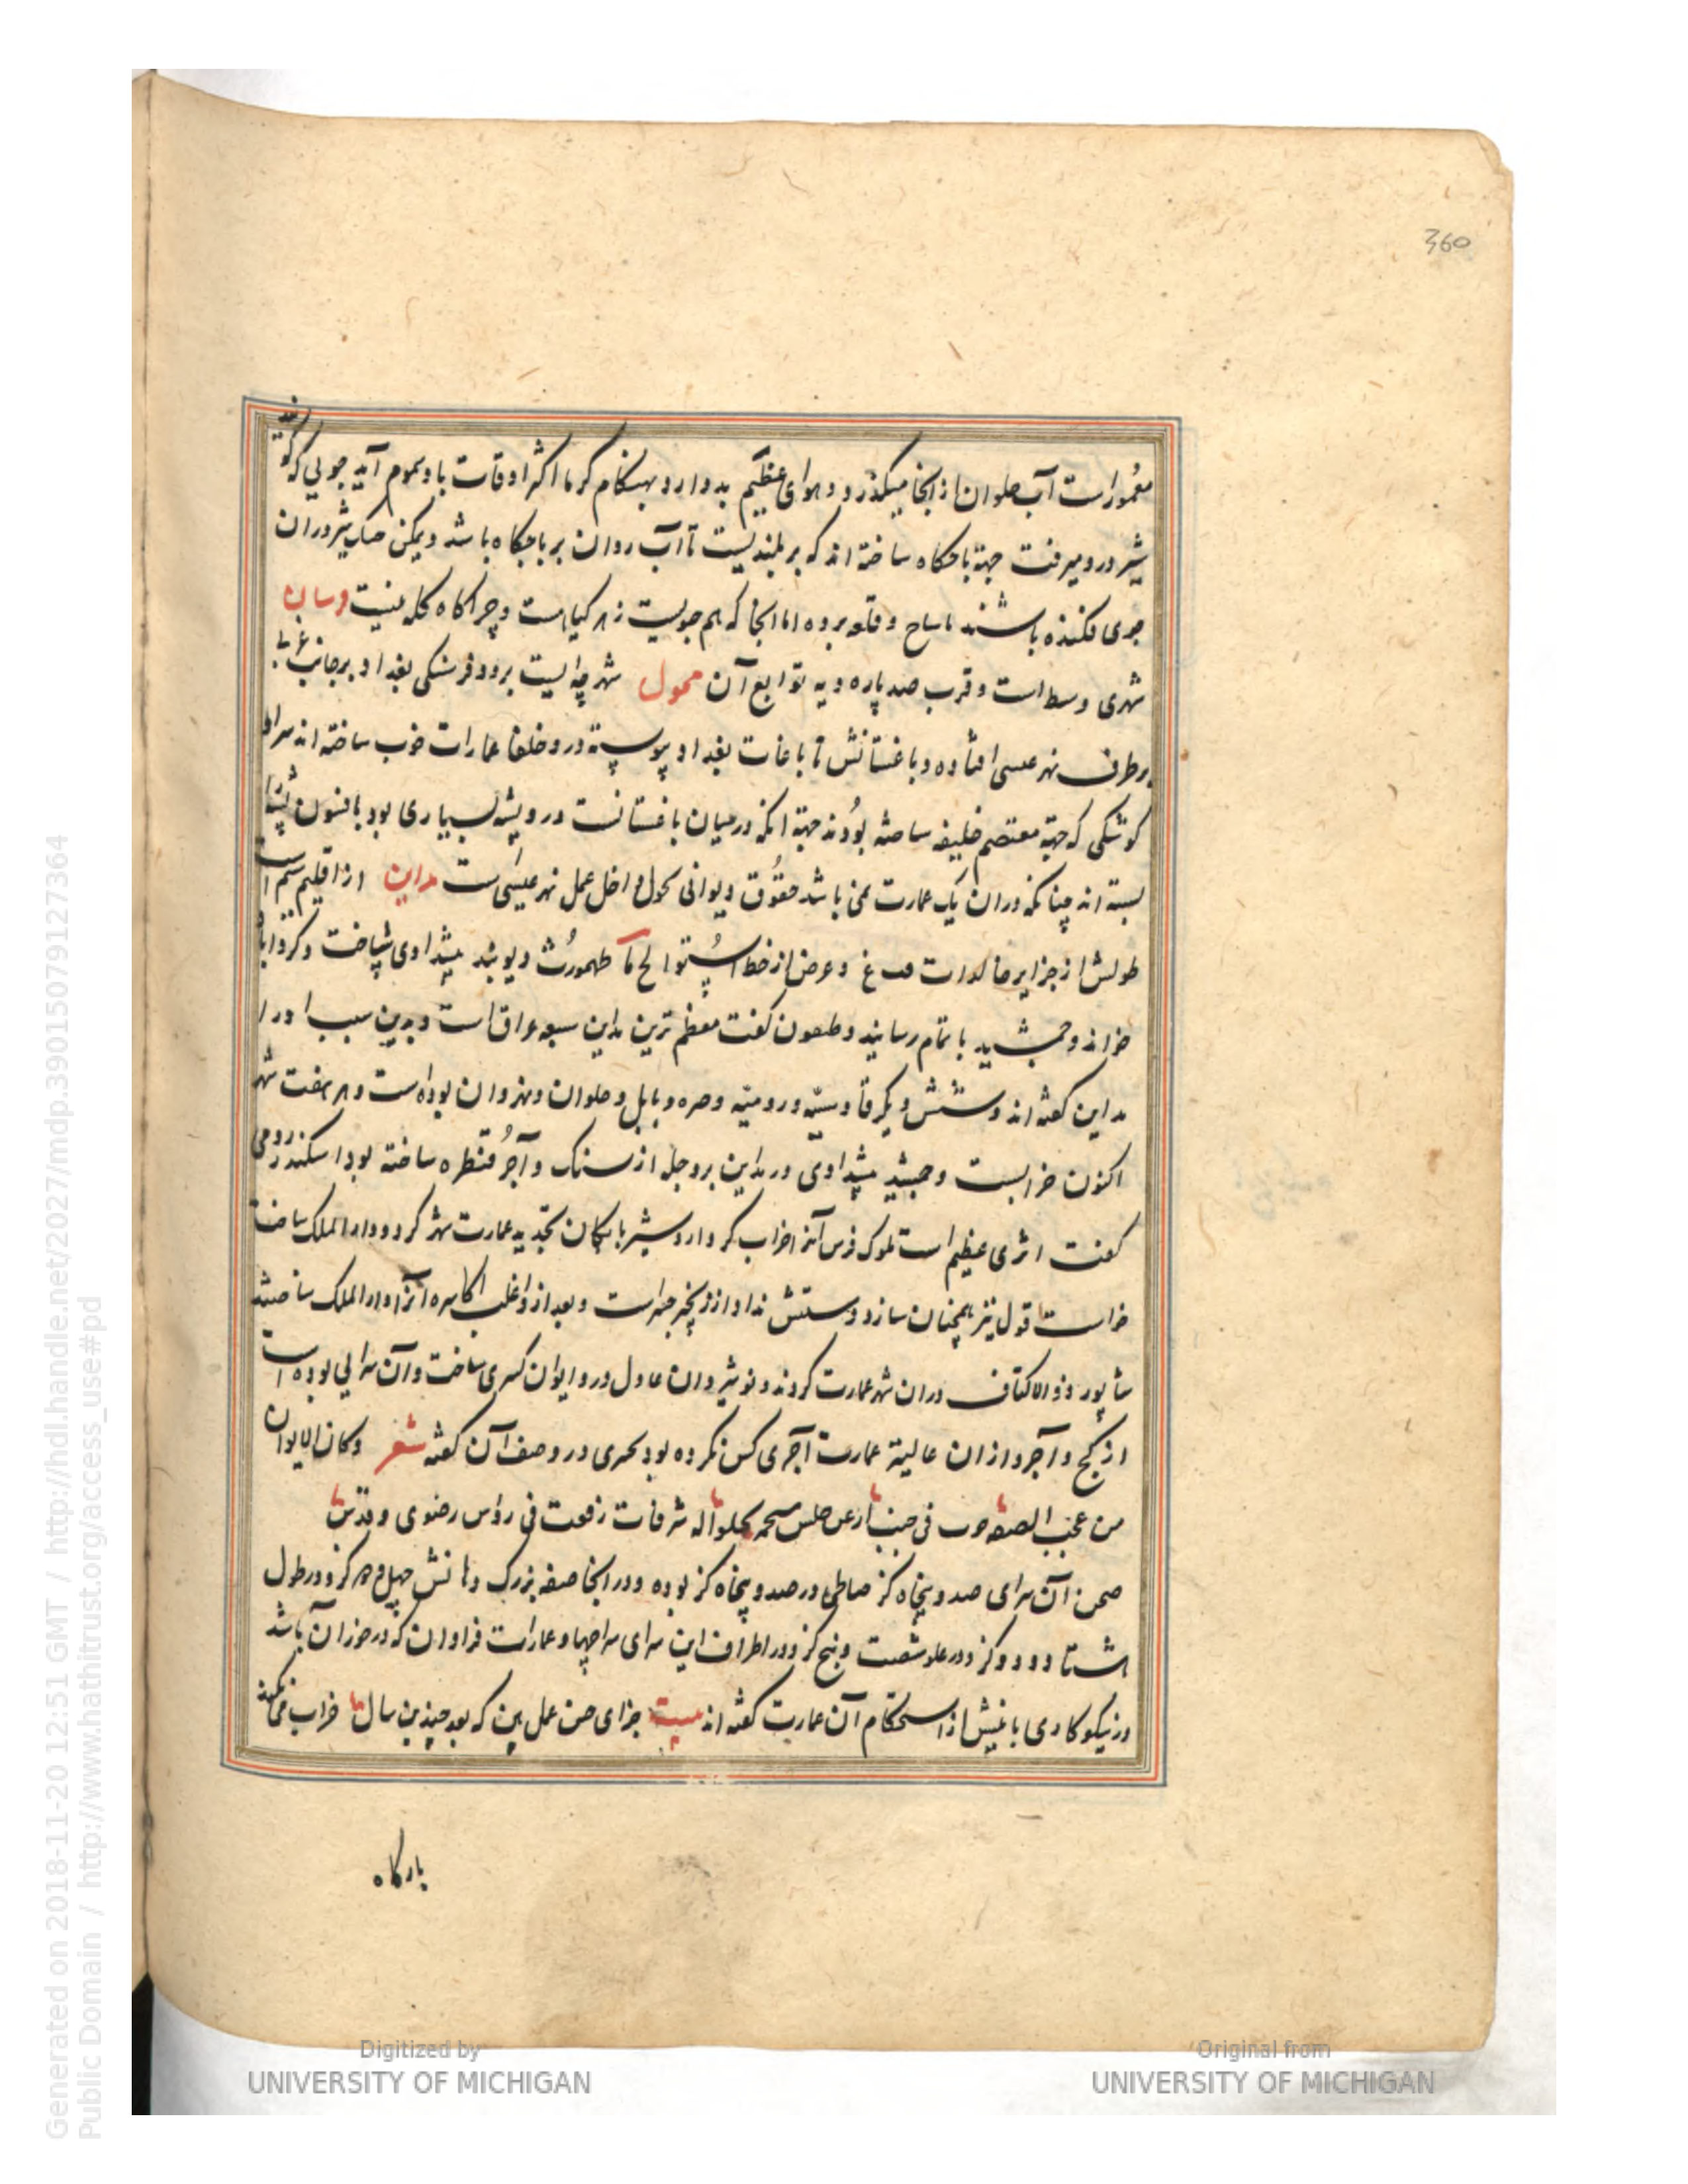 360
معمور است آب حلوان از آنجا میکذرد و هوای عظیم بد دارد بهنکام کرما اکثر اوقات باد سموم آید جویی که کویند
شیر درو میرفت جهة باحکاه ساخته اند که بر بلندیست تا آب روان بر باجکاه باشد ویمکن صاب شیر در آن
جوی فکنده باشند و قلعه بوده اما آنجا که هم جویست زهر کیاست و چراکاه کله نیست
شهری وسط است و قرب صد پاره دیه توابع آن محول شهرچه ایست بر دو فرسنکی بغداد بر جانب غربی
بر طرف نهر عیسی افتاده و باغستانش تا باغات بغداد پیوسته درو خلفا عمارات خوب ساخته اند سرا و
کوشکی که جهة معتصم خلیفه ساخته بودند جهة آنکه در میان باغستانست درو پشه بسیاری بود بافسون پشها
بسته اند چنانکه در آن یک عمارت نمی باشد حقوق دیوانی محول داخل عمل نهر عیسی است مداین از اقلیم سیم است
طولش از جزایر خالدات و عرض از خط استوا لح ک طهمورث دیوبند پیشدادی ساخت و کردآباد
خواند و جمشید باتمام رسانید و طعون کفت معظم ترین مداین سبعه عراق است و بدین سبب او را
مداین کفته اند و شش دیکر قادسیه و رومیه و حیره و بابل و حلوان و نهروان بوده است و هر هفت شهر
اکنون خرابست و جمشید پیشدادی در مداین بر دجله از سنک و آجر قنطره ساخته بود اسکندر رومی
کفت اثری عظیم است ملوک فرس آنرا خراب کرد اردشیر بابکان تجدید عمارت شهر کرد و دار الملک ساخت
خواست تا قول نیز همچنان سازد دستش نداد از زنجیر جسر است و بعد ازو اغلب اکاسره آنرا دار الملک ساختند
شاپور ذو الاکتاف در آن شهر عمارت کردند و نوشیروان عادل درو ایوان کسری ساخت و آن سرایی بوده است
از کج و آجر و از آن عالیة عمارت آجری کس نکرده بود بحتری در وصف آن کفته شعر وکان الایوان
من عجب الصنعة جوب فی جنب ارعن جلس له شرفات رفعت فی رؤس رضوی و قدس
صحن آن سرای صد و پنجاه کز در صد و پنجاه کز بوده و در آنجا صفه بزرک دهانش چهل و دو کز و در طول
هشتاد و دو کز و در علو شصت و پنج کز و در اطراف این سرای سراچها و عمارات فراوان که در خور آن باشد
و نیکو کاری بانیش از استحکام آن عمارت کفته اند بیت جزای حسن عمل بین که بعد چندین سال خراب می نکند
بارکاه
Digitized by
UNIVERSITY OF MICHIGAN
Original from
UNIVERSITY OF MICHIGAN
Generated on 2018-11-20 12:51 GMT / http://hdl.handle.net/2027/mdp.39015079127364
Public Domain / http://www.hathitrust.org/access_use#pd